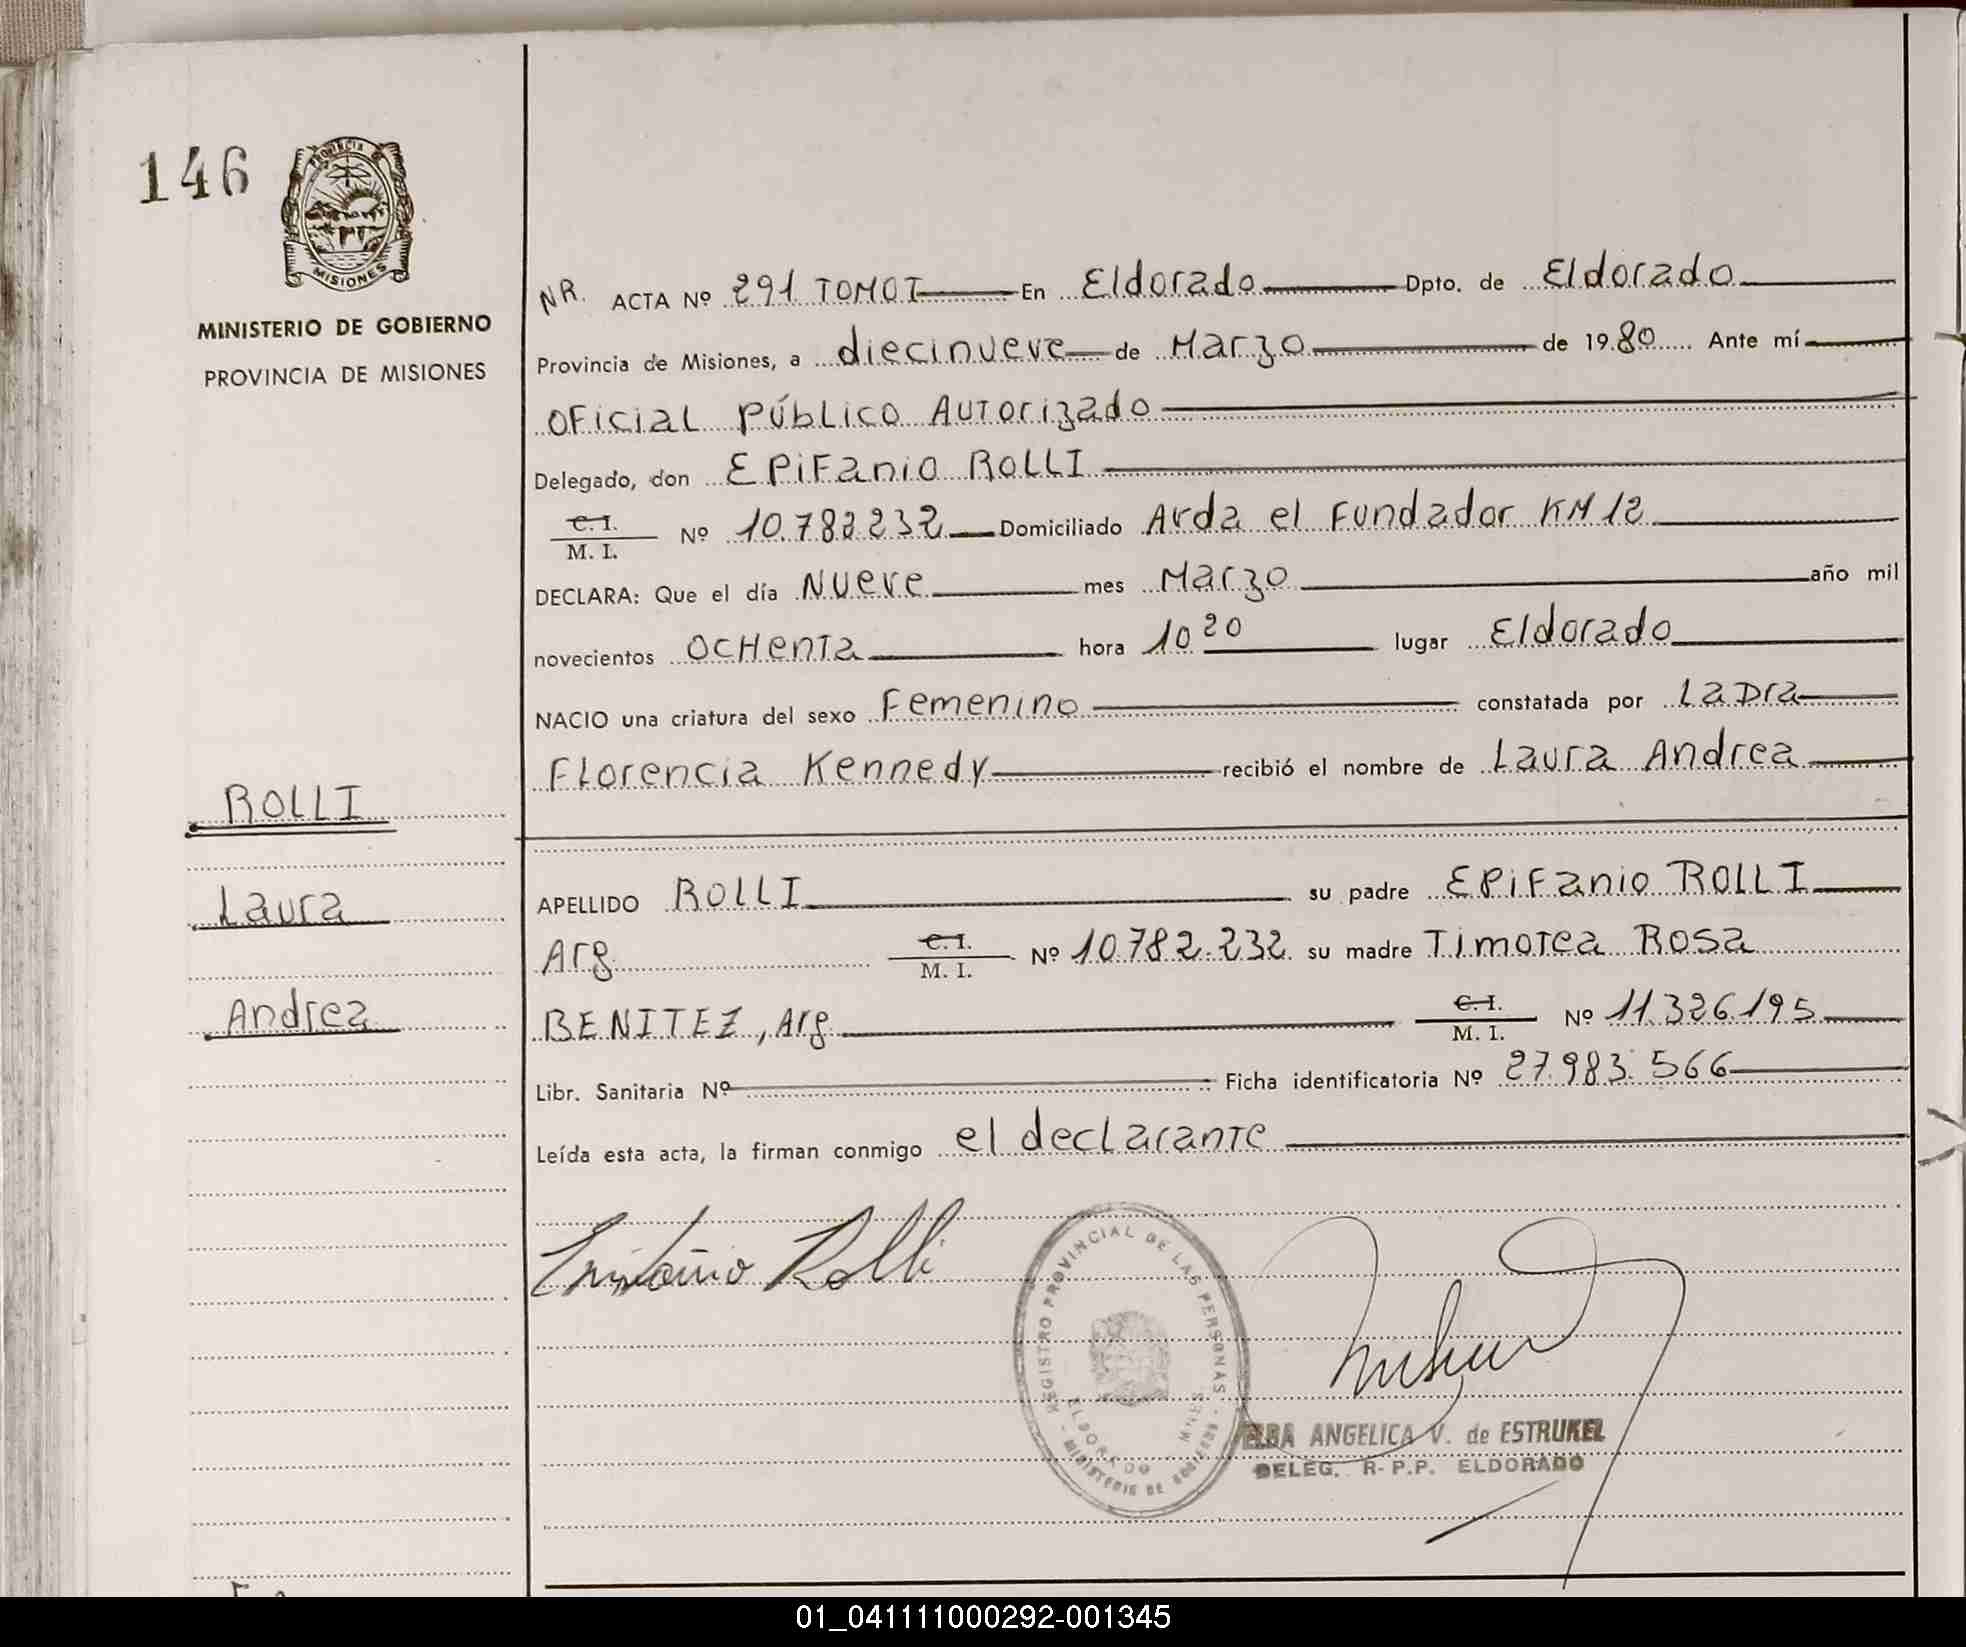 146
PROVINCIA DE
MISIONES
MINISTERIO DE GOBIERNO
PROVINCIA DE MISIONES
NR. ACTA Nº 291 TOMO I En Eldorado Dpto. de Eldorado
Provincia de Misiones, a diecinueve de Marzo de 1980 Ante mí
Oficial Público Autorizado
Delegado, don Epifanio ROLLI
C. I.
M. I. Nº 10.782232 Domiciliado Avda el Fundador KM 12
DECLARA: Que el día Nueve mes Marzo año mil
novecientos ochenta hora 10 20 lugar Eldorado
NACIO una criatura del sexo Femenino constatada por La Dra
Florencia Kennedy recibió el nombre de Laura Andrea
ROLLI
Laura
Andrea
APELLIDO ROLLI su padre Epifanio ROLLI
Arg C. I.
M. I. Nº 10.782.232 su madre Timotea Rosa
BENITEZ, Arg C. I.
M. I. Nº 11.326.195
Libr. Sanitaria Nº Ficha identificatoria Nº 27.983.566
Leída esta acta, la firman conmigo el declarante
Epifanio Rolli
REGISTRO PROVINCIAL DE LAS PERSONAS
ELDORADO
MNES
MINISTERIO DE GOBIERNO
ELBA ANGELICA V. de ESTRUKEL
DELEG. R-P.P. ELDORADO
01_041111000292-001345